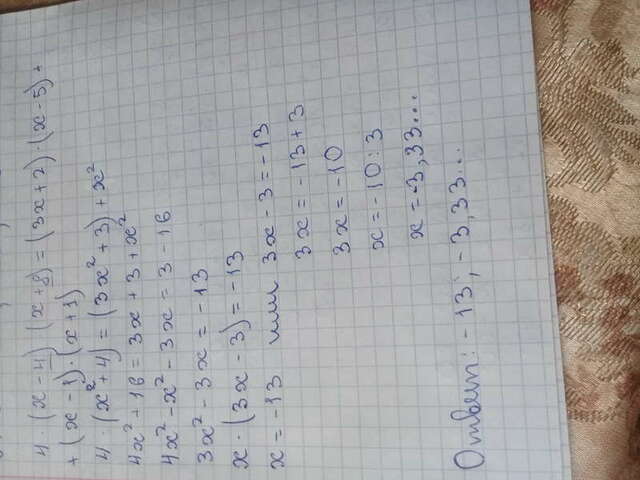 4 (x-4) (x+8) = (3x+2) · (x-5) +
+ (x-1) · (x+1)
4 · (x²+4) = (3x²+3) + x²
4x² + 16 = 3x + 3 + x²
4x² - x² - 3x = 3 - 16
3x² - 3x = -13
x · (3x - 3) = -13
x = -13 или 3x - 3 = -13
3x = -13 + 3
3x = -10
x = -10 : 3
x = -3,33...
Ответ: -13; -3,33...